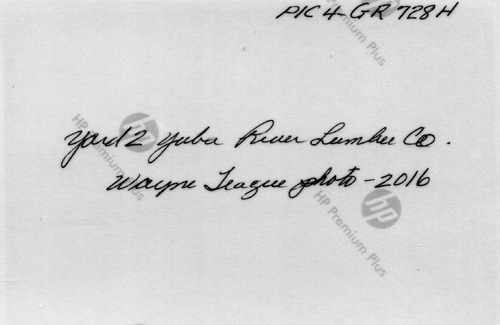 PIC 4-GR 728H
Yard 2 Yuba River Lumber Co.
Wayne League photo - 2016
hp
HP Premium Plus
hp
HP Premium Plus
hp
HP Premium Plus